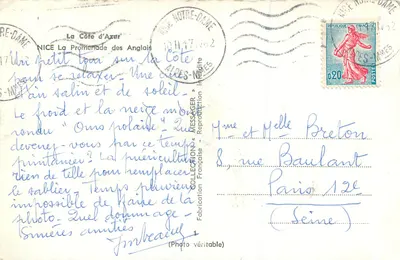 La Côte d'Azur
NICE La Promenade des Anglais
Un petit tour sur la Côte
pour se retaper - Une
d'air salin et de soleil -
Le froid et la neige m'ont
rendu "Ours polaire" - Que
devenez-vous par ce temps
printanier? La puériculture
rien de tel pour remplacer
le sablier - Temps pluvieux
impossible de faire de la
photo - Quel dommage -
Sincères amitiés
(Photo véritable)
COLLECTION "MESSAGER"
Fabrication Française - Reproduction
NOTRE-DAME
ALPES-MMES
0,20
POSTES
Mme et Melle Breton
8, rue Baulant
Paris 12e
(Seine)